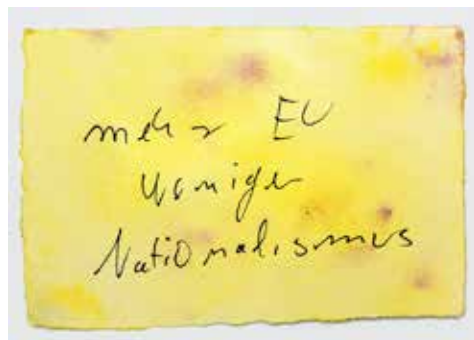 mehr EU
weniger
Nationalismus